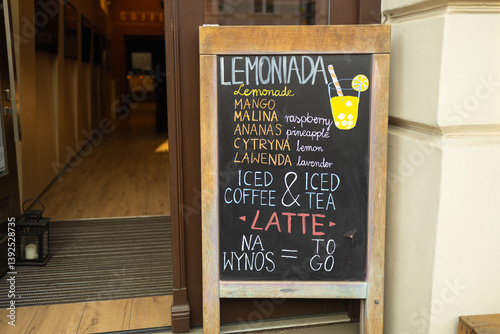 LEMONIADA
Lemonade
MANGO
MALINA raspberry
ANANAS pineapple
CYTRYNA lemon
LAWENDA lavender
ICED COFFEE & ICED TEA
LATTE
NA WYNOS = TO GO
Adobe Stock | #1392528735